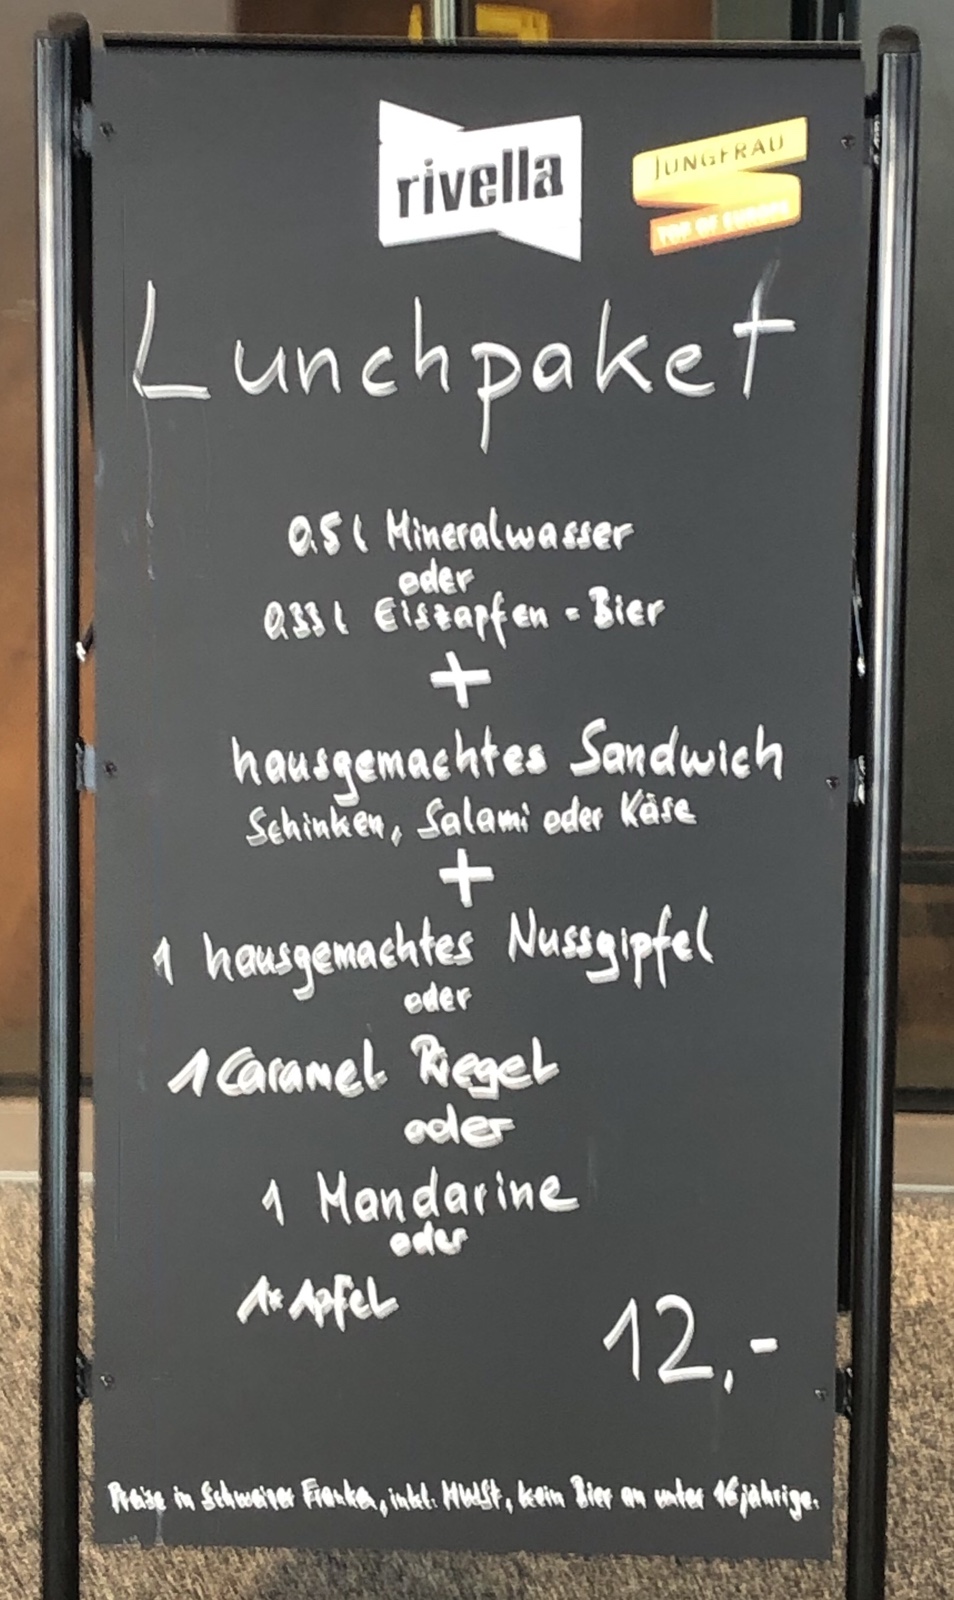 rivella
JUNGFRAU
TOP OF EUROPE
Lunchpaket
0.5 l Mineralwasser
oder
0.33 l Eiszapfen - Bier
+
hausgemachtes Sandwich
Schinken, Salami oder Käse
+
1 hausgemachtes Nussgipfel
oder
1 Caramel Riegel
oder
1 Mandarine
oder
1x Apfel
12,-
Preise in Schweizer Franken, inkl. MWSt, kein Bier an unter 16 jährige.